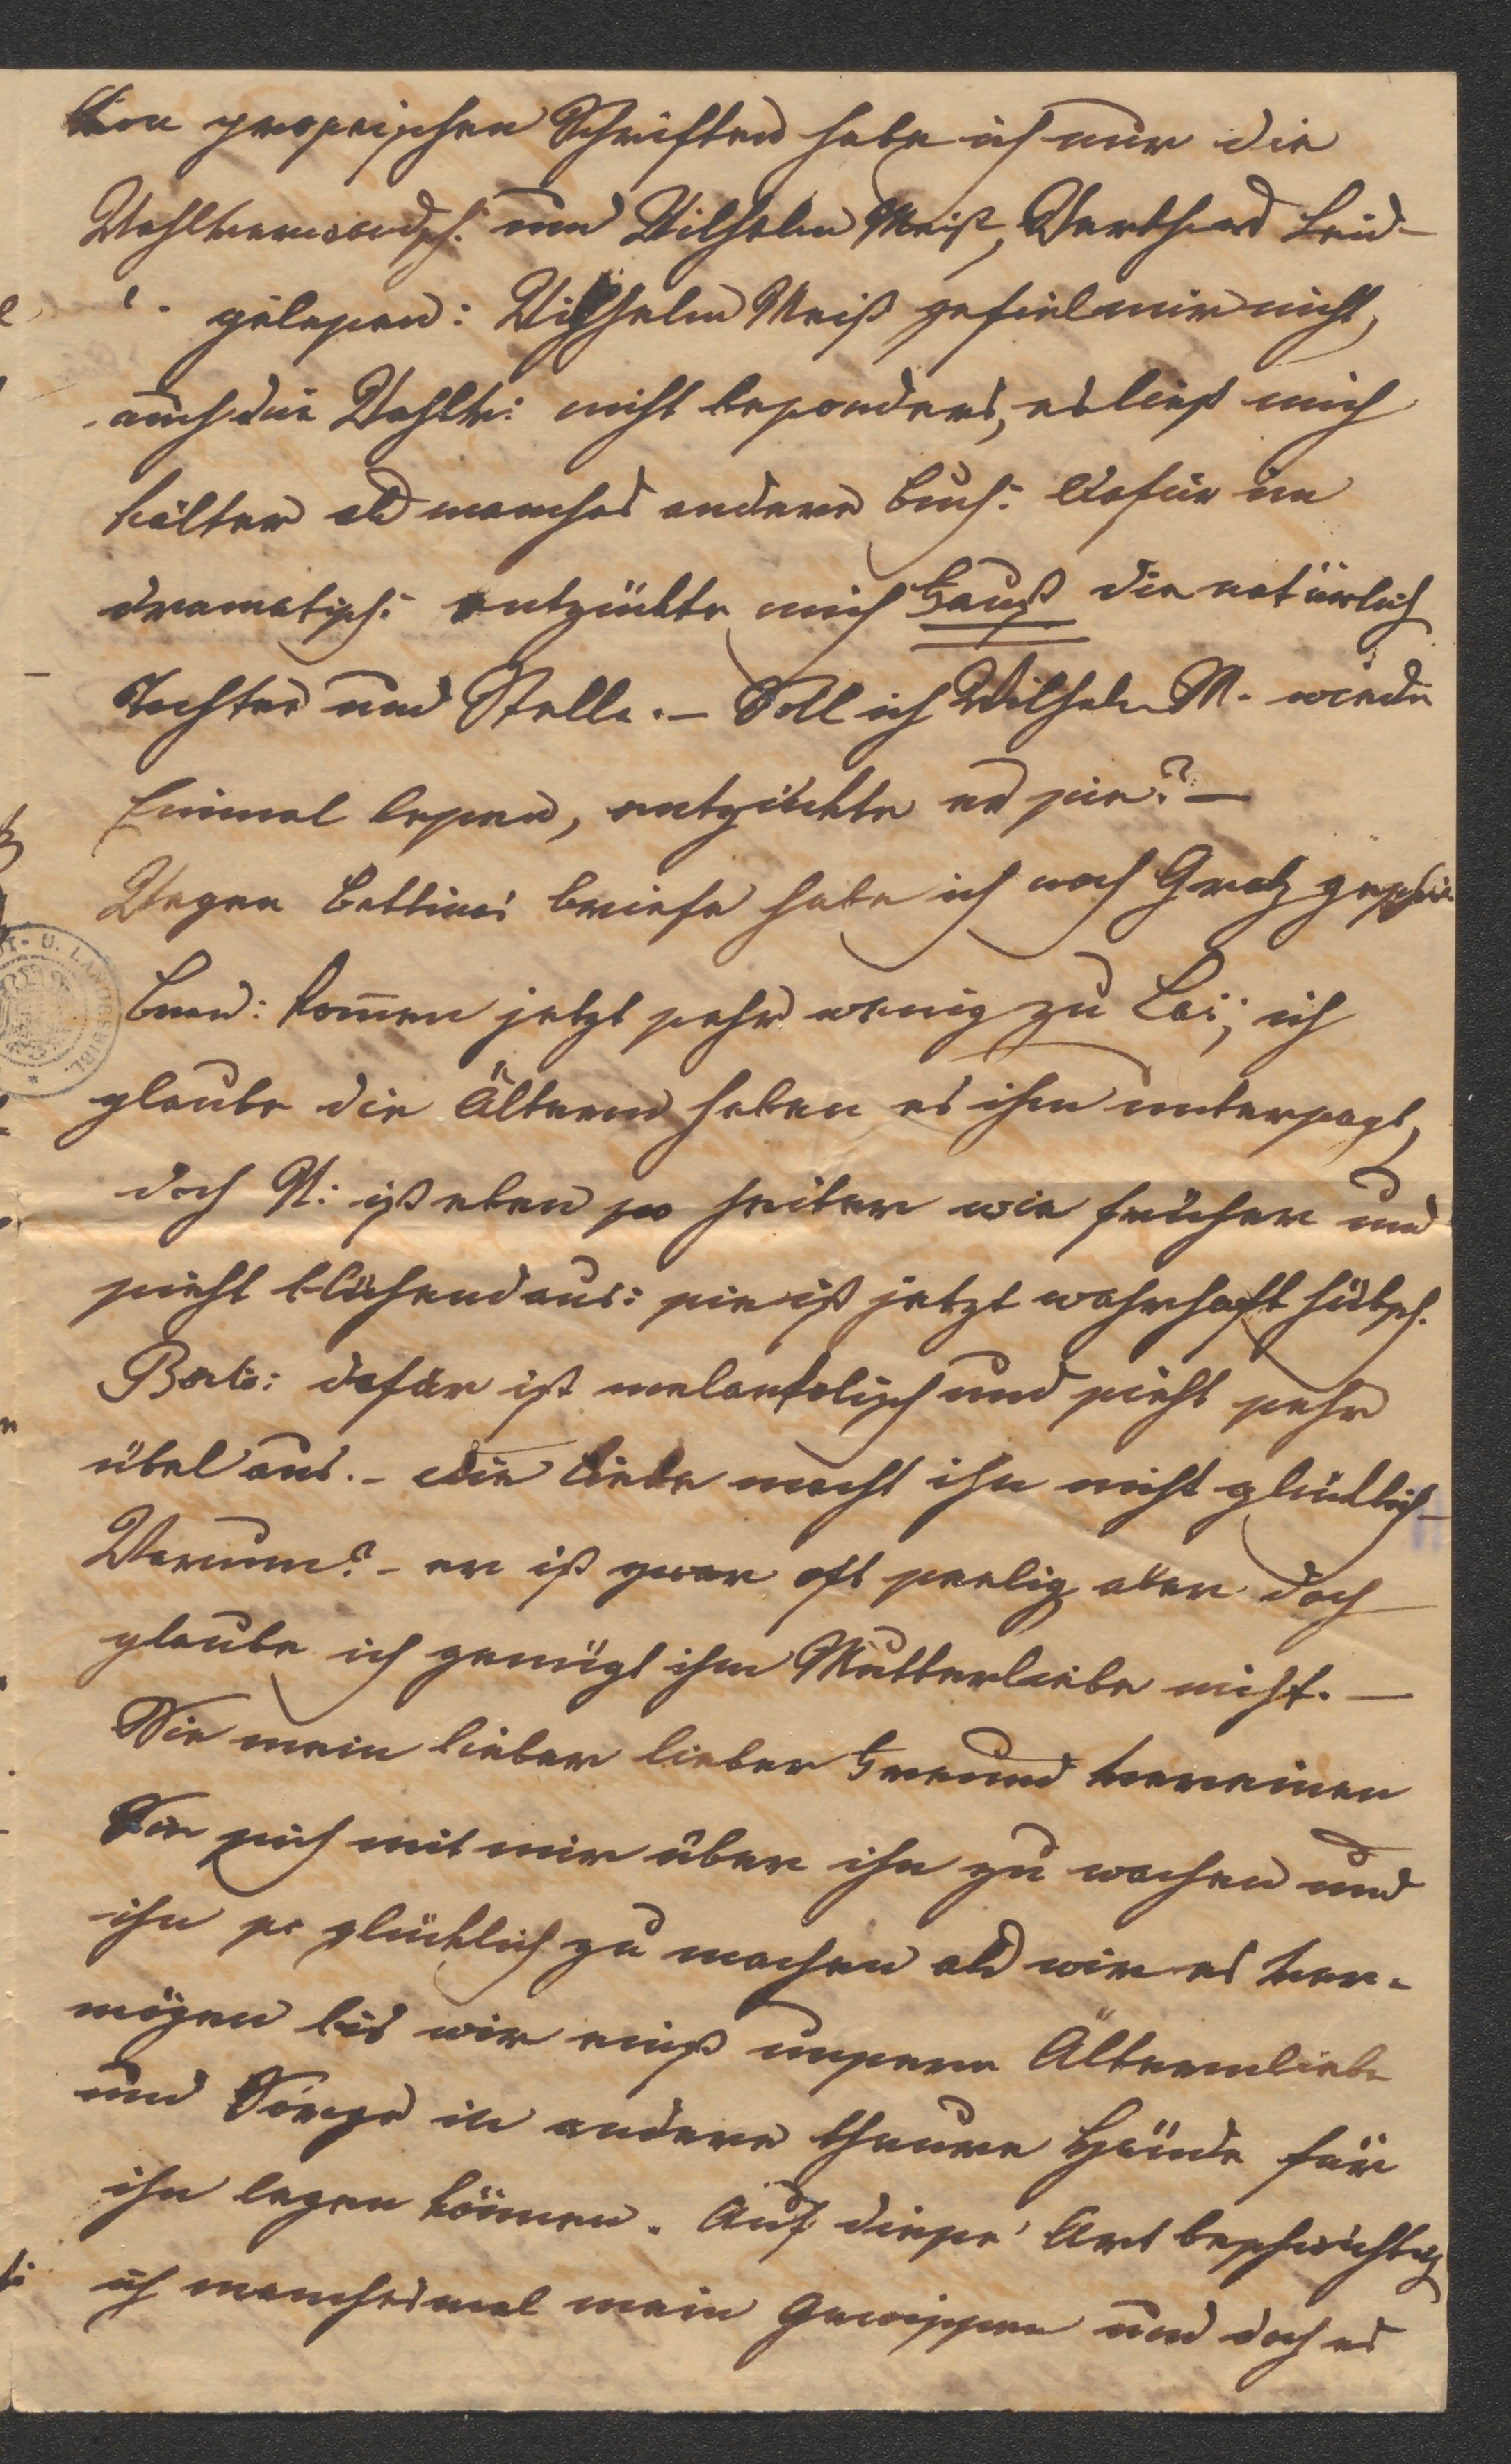 Von prosaischen Schriften habe ich nur die
Wahlverwandsch: und Wilhelm Meist, Werthers Leid-
gelesen: Wilhelm Meist gefiel mir nicht,
auch die Wahlv: nicht besonders, es ließ mich
kälter als manches andere Buch: Dafür im
dramatisch: entzückte mich Faust die natürlich
Tochter und Stella. – Soll ich Wilhelm M. wieder
Einmal lesen, entzückte er sie? –
Wegen Bettinas Briefe habe ich nach Gratz geschrie
ben: kom̅en jetzt sehr wenig zu ich
glaube die Ältern haben es ihm untersagt,
doch N: ist eben so heiter wie früher und
sieht blühend aus: sie ist jetzt wahrhaft hübsch.
dafür ist melankolisch und sieht sehr
übel aus. – Die Liebe macht ihn nicht glücklich –
Warum? – er ist zwar oft seelig aber doch
glaube ich genügt ihm Mutterliebe nicht. –
Sie mein lieber lieber Freund vereinen
Sie sich mit mir über ihn zu wachen und
ihn so glücklich zu machen als wir es ver-
mögen bis wir einst unsere Älternliebe
und Sorge in andere theure Hände für
ihn legen können. Auf diese Art beschwichtig
ich manchesmal mein Gewissen und doch es
U. LANDESBIBL.